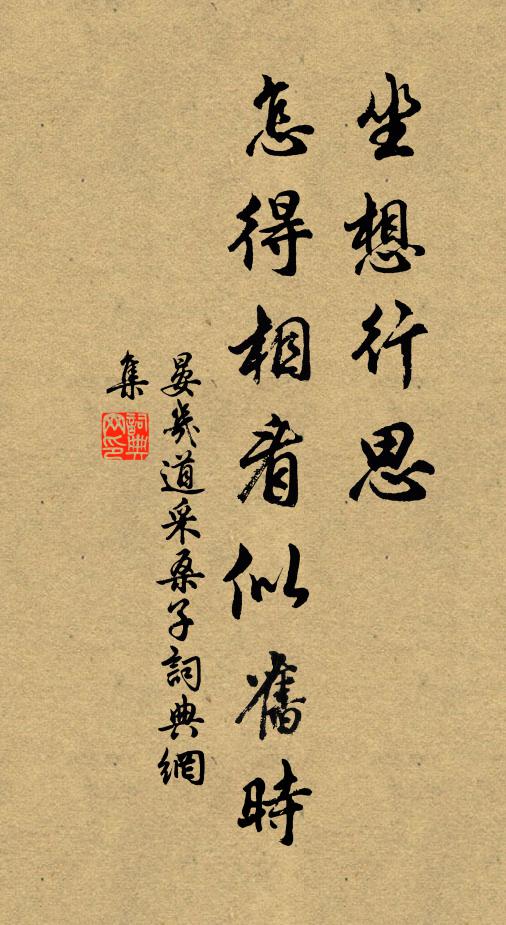 坐想行思
怎得相看似舊時
晏幾道采桑子詞典網
集
詞典網印